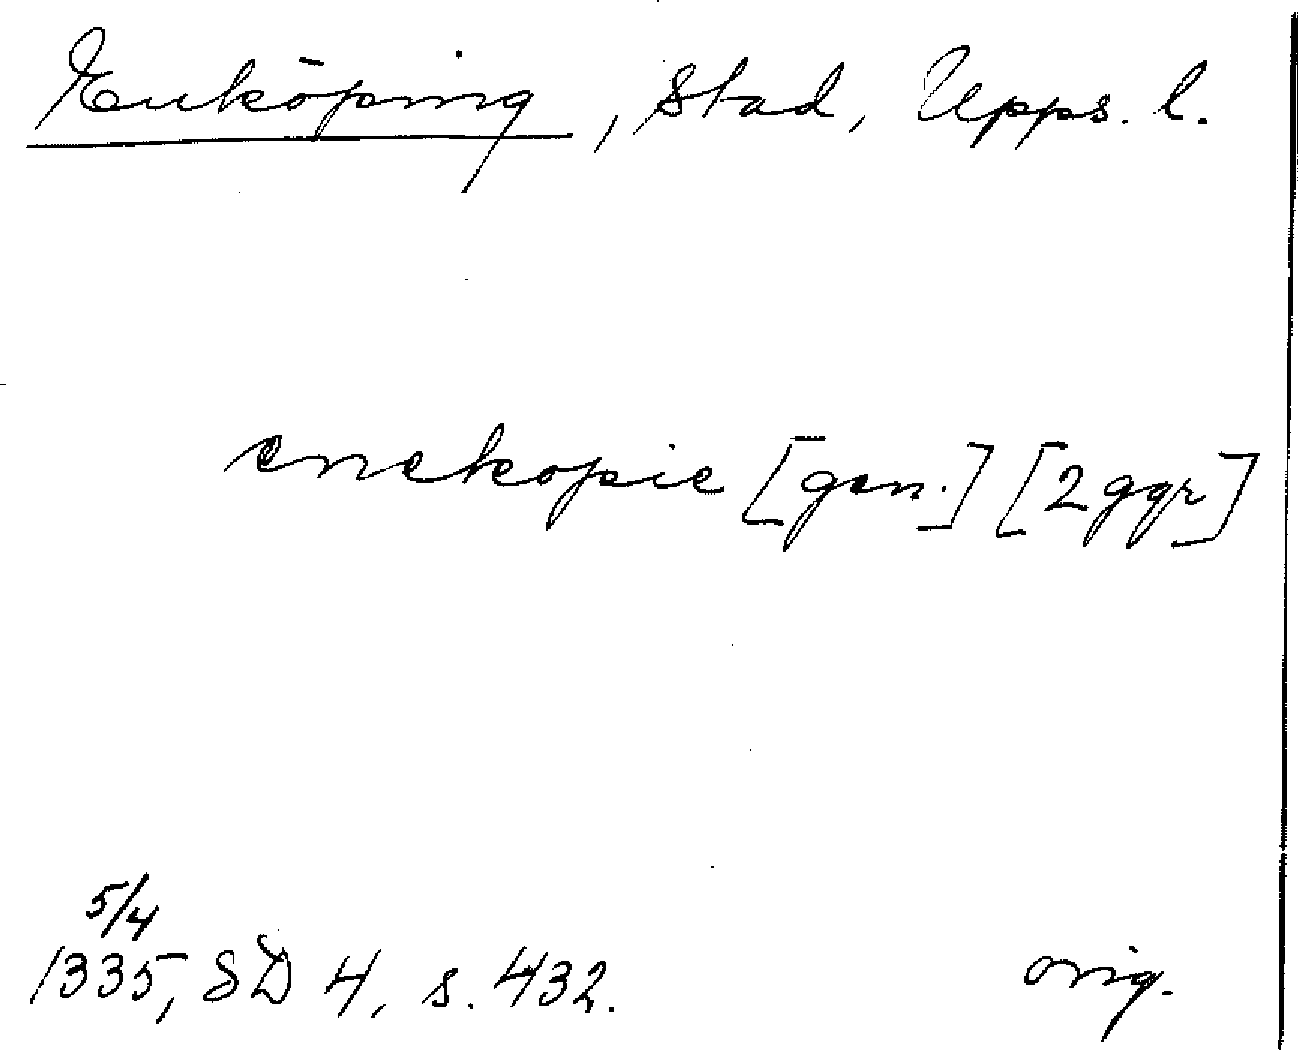 Enköping, stad, Upps. l.
enekopie [gen.] [2 ggr]
5/4
1335, SD 4, s. 432. orig.